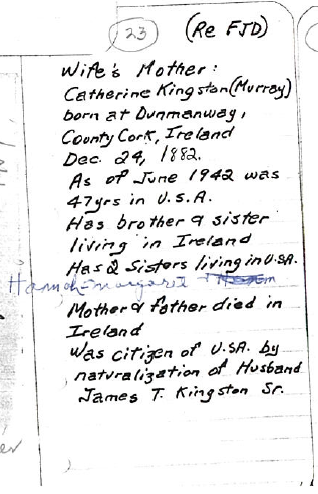 23
(Re FJD)
Wife's Mother:
Catherine Kingston (Murray)
born at Dunmanway,
County Cork, Ireland
Dec. 24, 1882.
As of June 1942 was
47yrs in U.S.A.
Has brother & sister
living in Ireland
Has 2 Sisters living in U.S.A.
Hannah - Margaret
Mother & father died in
Ireland
Was citizen of U.S.A. by
naturalization of Husband
James T. Kingston Sr.